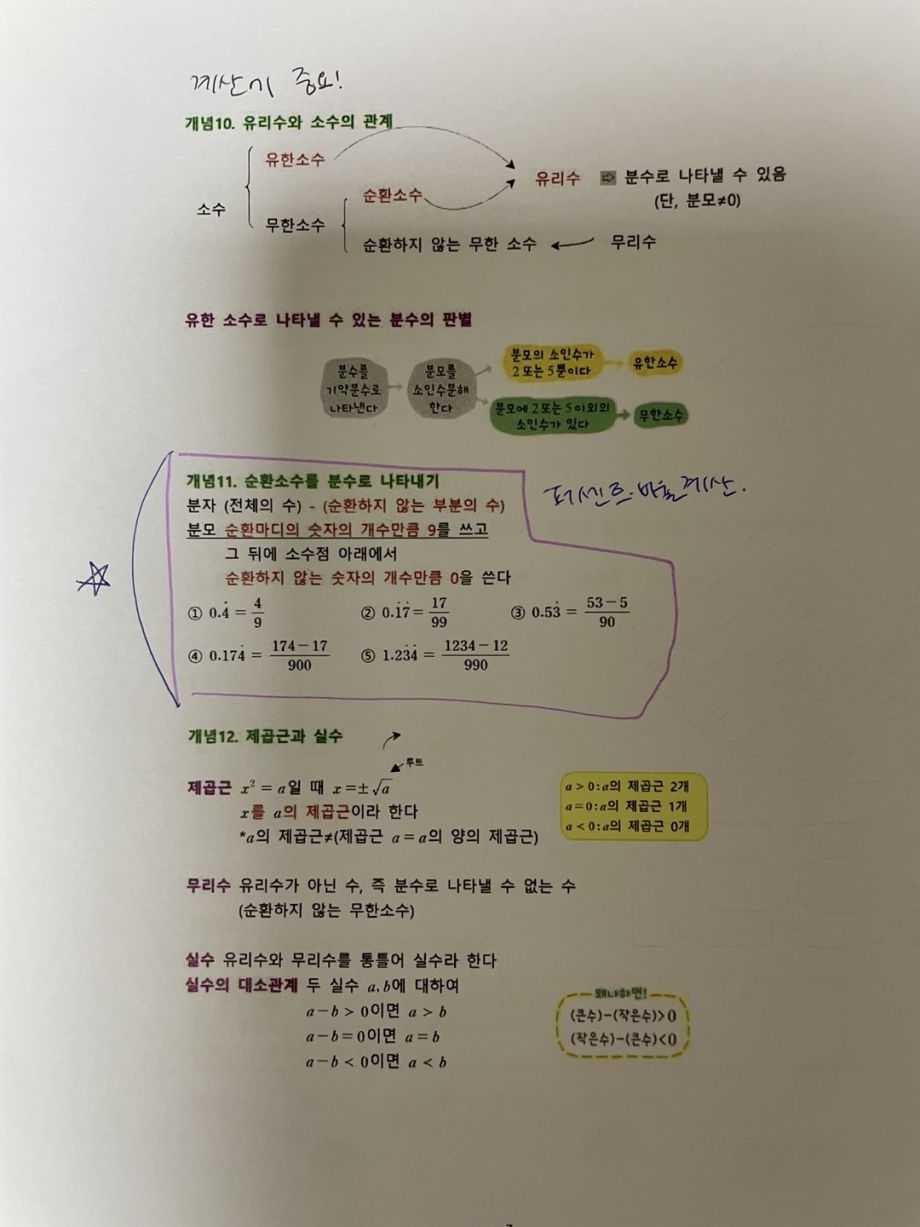 계산기 중요!
개념10. 유리수와 소수의 관계
유한소수
순환소수
유리수 ⇨ 분수로 나타낼 수 있음
(단, 분모≠0)
소수
무한소수
순환하지 않는 무한 소수
무리수
유한 소수로 나타낼 수 있는 분수의 판별
분수를
기약분수로
나타낸다
분모를
소인수분해
한다
분모의 소인수가
2 또는 5뿐이다
유한소수
분모에 2또는 5 이외의
소인수가 있다
무한소수
개념11. 순환소수를 분수로 나타내기
분자 (전체의 수) - (순환하지 않는 부분의 수)
분모 순환마디의 숫자의 개수만큼 9를 쓰고
그 뒤에 소수점 아래에서
순환하지 않는 숫자의 개수만큼 0을 쓴다
① 0.4̇ = 4/9 ② 0.1̇7̇ = 17/99 ③ 0.53̇ = 53-5/90
④ 0.174̇ = 174-17/900 ⑤ 1.23̇4̇ = 1234-12/990
개념12. 제곱근과 실수
루트
제곱근 x² = a일 때 x = ±√a
x를 a의 제곱근이라 한다
*a의 제곱근≠(제곱근 a = a의 양의 제곱근)
a > 0 : a의 제곱근 2개
a = 0 : a의 제곱근 1개
a < 0 : a의 제곱근 0개
무리수 유리수가 아닌 수, 즉 분수로 나타낼 수 없는 수
(순환하지 않는 무한소수)
실수 유리수와 무리수를 통틀어 실수라 한다
실수의 대소관계 두 실수 a, b에 대하여
a-b > 0이면 a > b
a-b = 0이면 a = b
a-b < 0이면 a < b
왜냐하면!
(큰수)-(작은수)>0
(작은수)-(큰수)<0